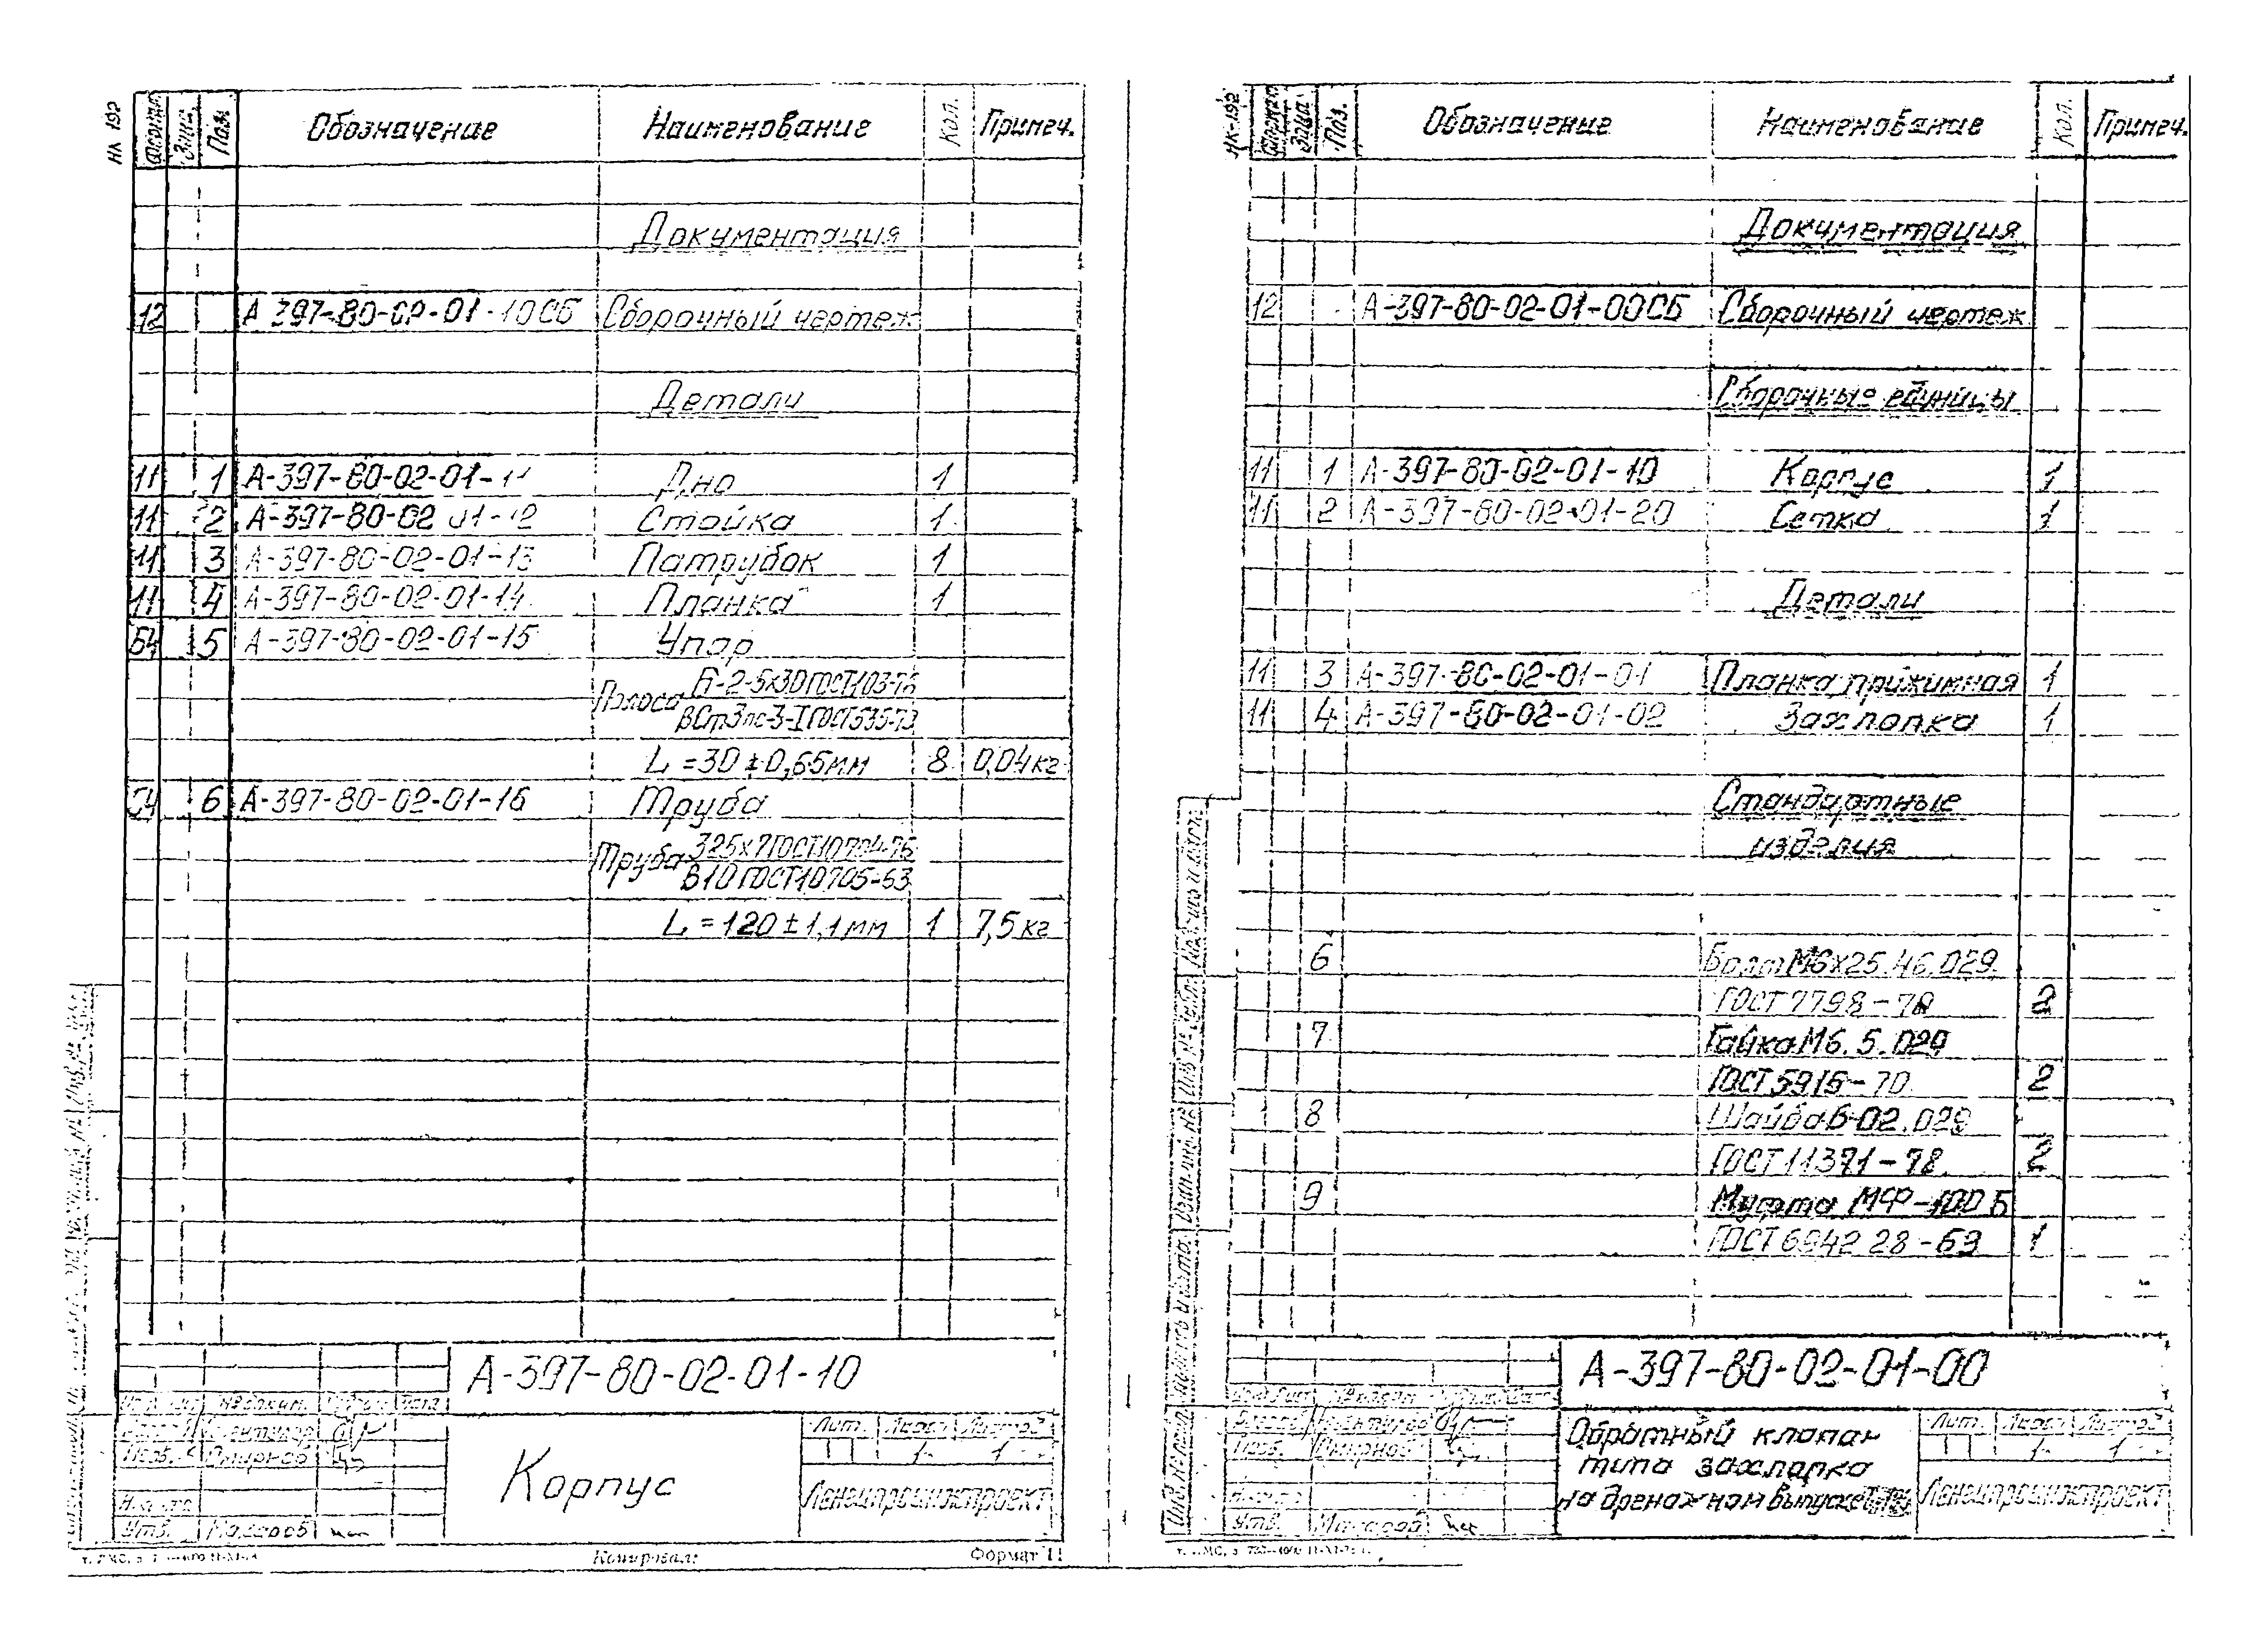 Формат Зона Поз. Обозначение Наименование Кол. Примеч.
Документация
12 А-397-80-02-01-10СБ Сборочный чертеж
Детали
11 1 А-397-80-02-01-11 Дно 1
11 2 А-397-80-02-01-12 Стойка 1
11 3 А-397-80-02-01-13 Патрубок 1
11 4 А-397-80-02-01-14 Планка 1
БЧ 5 А-397-80-02-01-15 Упор
Полоса Б-2-5х30 ГОСТ 103-76
ВСт3пс-3-I ГОСТ 535-79
L = 30 ± 0,65 мм 8 0,04 кг
БЧ 6 А-397-80-02-01-16 Труба
Труба 325х7 ГОСТ 10704-76
В10 ГОСТ 10705-63
L = 120 ± 1,1 мм 1 7,5 кг
А-397-80-02-01-10
№ докум.
Лит. Лист Листов
1 1
Разраб. Смирнов
Корпус
Ленгипроинжпроект
Утв. Макаров
Копировал: Формат 11
НК-192
Формат Зона Поз. Обозначение Наименование Кол. Примеч.
Документация
12 А-397-80-02-01-00СБ Сборочный чертеж
Сборочные единицы
11 1 А-397-80-02-01-10 Корпус 1
11 2 А-397-80-02-01-20 Сетка 1
Детали
11 3 А-397-80-02-01-01 Планка прижимная 1
11 4 А-397-80-02-01-02 Захлопка 1
Стандартные
изделия
6 Болт М6х25.46.029
ГОСТ 7798-70 2
7 Гайка М6.5.029
ГОСТ 5915-70 2
8 Шайба 6-02.029
ГОСТ 11371-78 2
9 Муфта МФ-100 Б
ГОСТ 6942 28-69 1
А-397-80-02-01-00
Обратный клапан
типа захлопка
на дренажном выпуске
Лит. Лист Листов
1 1
Ленгипроинжпроект
Утв. Макаров